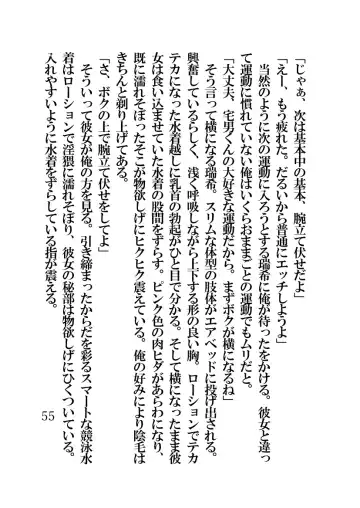 「じゃぁ、次は基本中の基本、腕立て伏せだよ」
「えー、もう疲れた。だるいから普通にエッチしようよ」
　当然のように次の運動にうつろうとする瑞希に俺が待ったをかける。彼女と違っ
て運動に慣れていない俺はいくらおままごとの運動でもムリだと。
「大丈夫、宅男くんの大好きな運動だから。まずボクが横になるね」
　そう言って横になる瑞希。スリムな体型の肢体がエアベッドに投げ出される。
興奮しているらしく、浅く呼吸しながら上下する形の良い胸。ローションでテカ
テカになった水着越しに乳首の勃起がひと目で分かる。そして横になったまま彼
女は食い込ませていた水着の股間をずらす。ピンク色の肉ヒダがあらわになり、
既に濡れそぼったそこが物欲しげにヒクヒク震えている。俺の好みにより陰毛は
きちんと剃り上げてある。
「さ、ボクの上で腕立て伏せをしてよ」
　そういって彼女が俺の方を見る。引き締まったからだを彩るスマートな競泳水
着はローションで淫猥に濡れそぼり、彼女の秘部は物欲しげにひくついている。
入れやすいように水着をずらしている指が震える。
55